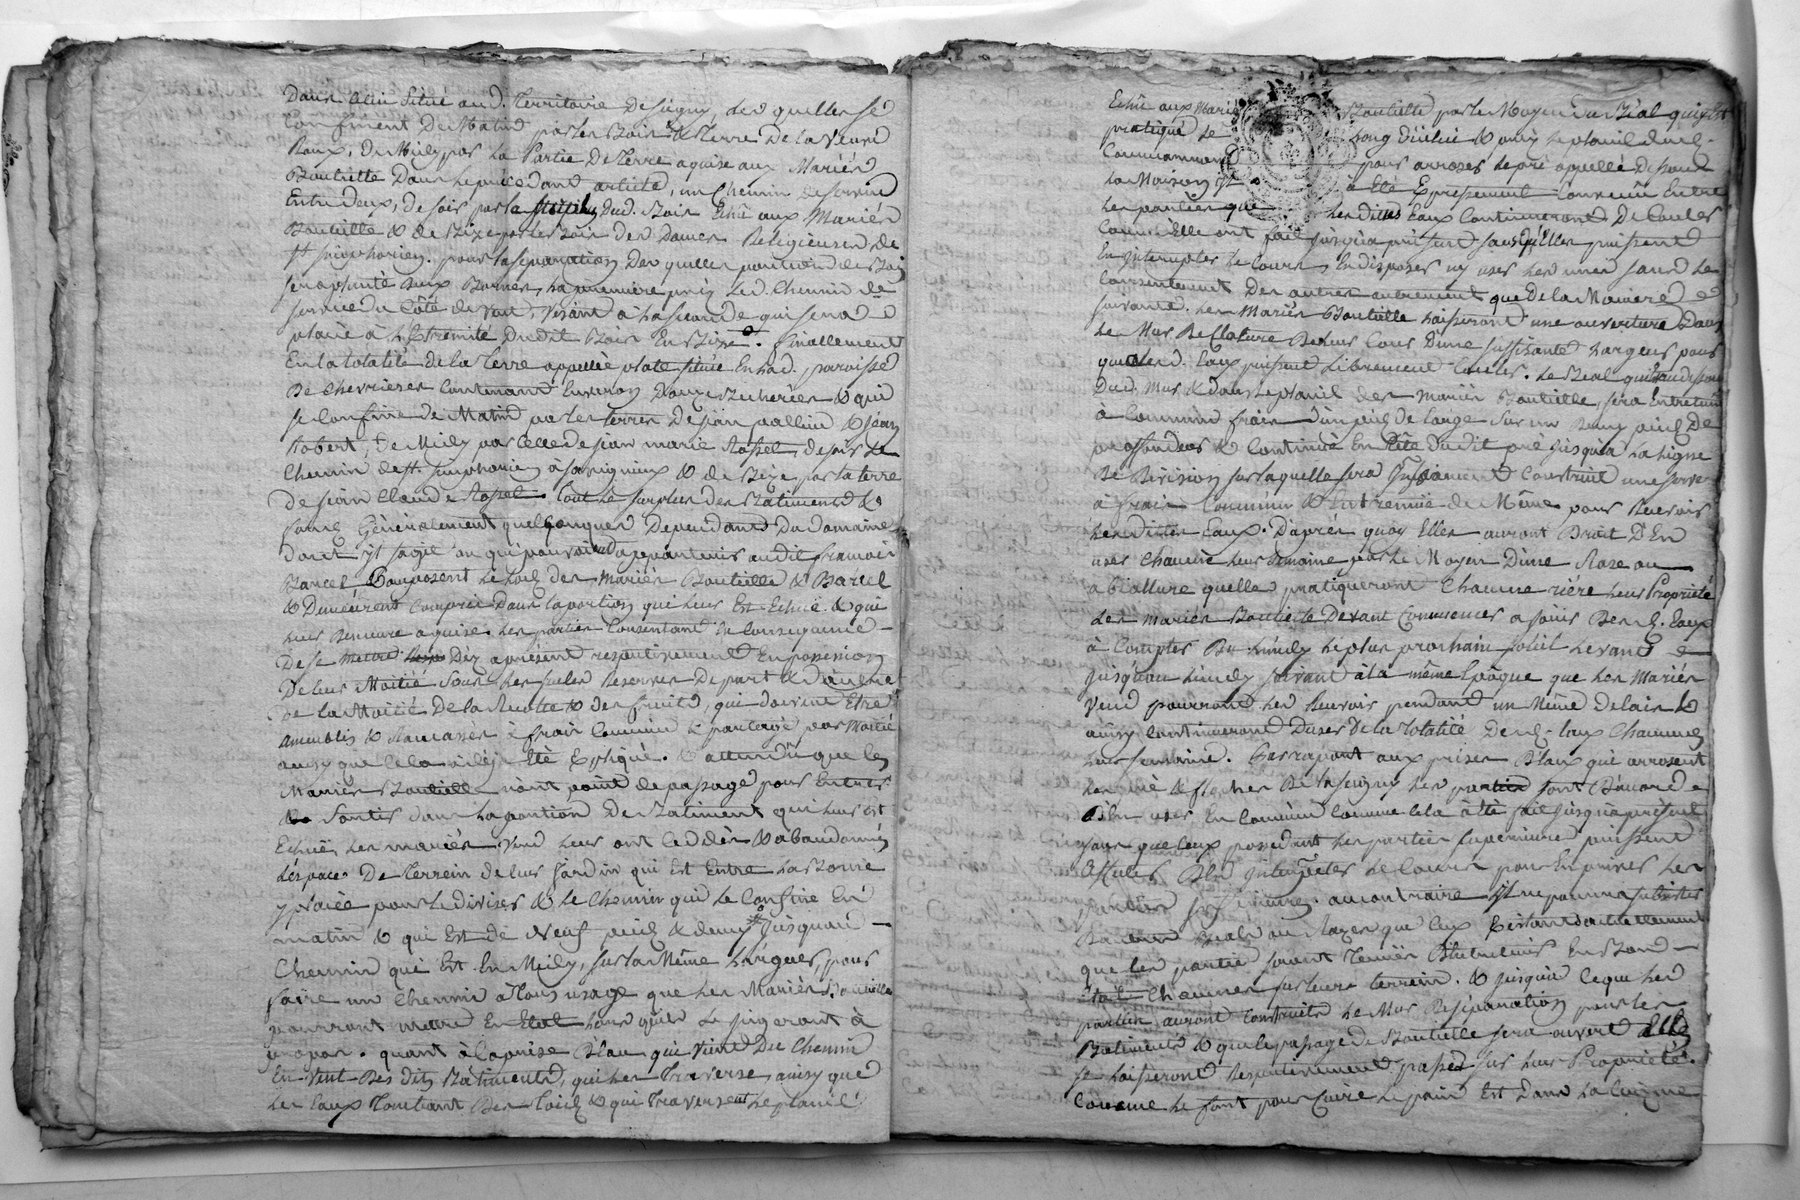 Dans celui situé aud. Territoire de sugny, les quelles se
Confinent De Matin par les Bois & Terre De la Veuve
Roux, De Midy par la Partie De Terre aquise aux Mariés
Boutielle Dans le précédant article, un Chemin de service
Entre deux, de soir par la dud. Bois Echû aux Mariés
Boutielle & de Bize par les Bois des Dames Religieuses de
St simphorien. pour la séparation Des quelles portions de Bois
sera planté deux Bornes, la première près led. Chemin de
service du Côté de vent, visant à la seconde qui sera
placée à l'Extremité Dudit Bois En Bize. finallement
En la totalité de la Terre appellée plate située En lad. paroisse
De Chevrieres Contenant Environ Deux Bicherées & qui
se Confine de Matin par les terres De jean pallier & jean
Robert, De Midy par Celle de jean marie Rossel de soir le
Chemin de St simphorien à savigneux & de Bize par la terre
De jean Claude Rossel. Tout le surplus des Batiments &
fonds Généralement quelconques Dépendants Du Domaine
dont il s'agit ou qui pouvoient apartenir audit françois
Bancel Composent le Lot des Mariés Boutielle & Bancel
& Demeurent Compris Dans la portion qui leur Est Echûe & qui
leur Demeure aquise les parties Consentant En Conséquence
De se mettre Dez à présent respectivement En possession
De leur Moitié Sous les seules Reserves De part & d'autre
de la Moitié De la Recolte & des fruits, qui doivent Etre
ameublis & Ramasser à frais Commun & partagé par Moitié
ainsy que Cela a déjà Eté Expliqué. & attendu que les
Mariés Boutielle n'ont point de passage pour Entrer
& Sortir dans la portion De Batiment qui leur est
Echûe, les mariés Veud leur ont Ceddés & abandonnés
l'éspace De Terrein de leur Jardin qui Est Entre la Borne
y placée pour le diviser & le Chemin qui le Confine En
matin & qui Est de Neuf pieds & demy jusqu'au
Chemin qui Est En Midy, sur la Même largeur, pour
faire un Chemin à Tous usage que les Mariés Boutielle
pourront mettre En Etat lors qu'ils le jugeront à
propos. quant à la prise D'Eau qui Vient Du Chemin
En Vent Des dits Batiments, qui les Traverse, ainsy que
les Eaux Tombant Des Toits & qui Traversent le plail
Echû aux Mariés Boutielle par le Moyen du Béal qui y Est
pratiqué le long d'icelui & puis le plail dud.
Communement pour arroser le pré appellé Dessous
la Maison il a Eté Expressement Convenu Entre
les parties que les Dittes Eaux Continueront De Couler
Comme Elle ont fait jusqu'à présent sans qu'Elles puissent
En interrupter le Cours, En disposer ny user les unes sans le
Consentement Des autres autrement que De la Maniere
suivante. les Mariés Boutielle laisseront une ouverture Dans
le Mur De Cloture De leur Cour D'une suffisante largeur pour
que lesd. Eaux puissent Librement Couler. le Béal qui Sera dessous
Dud. Mur & dans le plail des Mariés Boutielle sera Entretenu
à Commun frais d'un pied de large Sur un Demy pied De
profondeur & Continué En Tête Dudit pré jusqu'à la ligne
De Division sur laquelle sera Construit une serve
à frais Commun & Entretenue de Même pour Recevoir
les dittes Eaux. D'après quoy Elles auront Droit D'En
user Chacune leur Semaine par le Moyen D'une Rase ou
abiallure quelles pratiqueront Chacune riére leur Propriété
les Mariés Boutielle Devant Commencer à jouir Desd. Eaux
à Compter Du lundy le plus prochain soleil levant &
jusqu'au lundy suivant à la même Epoque que les Mariés
Veud pourront les Recevoir pendant un Même Delais &
ainsy Continueront D'user De la Totalité Desd. Eaux Chacune
leur semaine. Par raport aux prises D'Eaux qui arrosent
les pré & flacher De la sugny les parties sont D'acord
d'En user En Commun Comme Cela a été fait jusqu'à présent
sans que Ceux possedant les parties superieures puissent
arreter Ny interrupter le Cours pour En priver les
parties inferieures. au contraire il ne pourra subsister
D'autre Beals ou Razes que Ceux Existant actuellement
que les parties seront Tenües D'Entretenir En Bon
Etat Chacunes sur leurs terrein. & jusqu'à Ceque les
parties auront Construits le Mur De séparation pour les
Batiments & que le passage de Boutielle sera ouvert Elles
se laisseront respectivement passer sur leur Propriété.
Comme le four pour Cuire le pain Est Dans la Cuisine